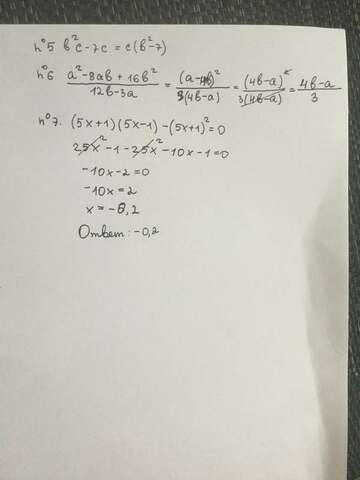 n°5 b²c-7c = c(b²-7)
n°6 a²-8ab+16b² / 12b-3a = (a-4b)² / 3(4b-a) = (4b-a)² / 3(4b-a) = 4b-a / 3
n°7. (5x+1)(5x-1)-(5x+1)²=0
25x²-1-25x²-10x-1=0
-10x-2=0
-10x=2
x=-0,2
Ответ:-0,2